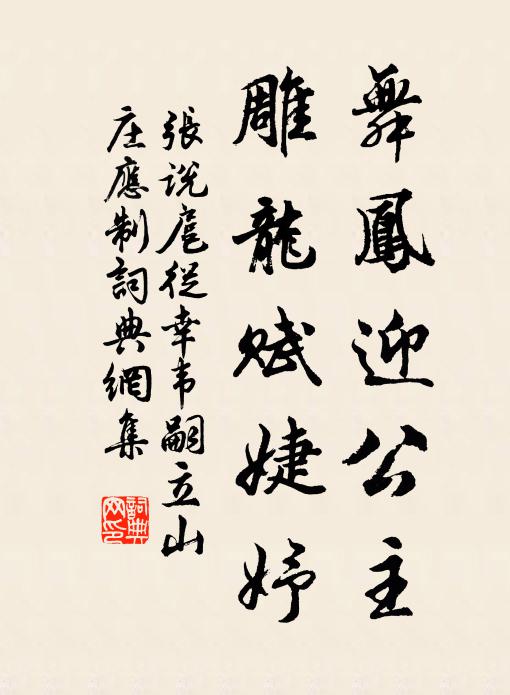 舞鳳迎公主
雕龍賦婕妤
張說扈從幸韦嗣立山
庄應制詞典網集
詞典網印